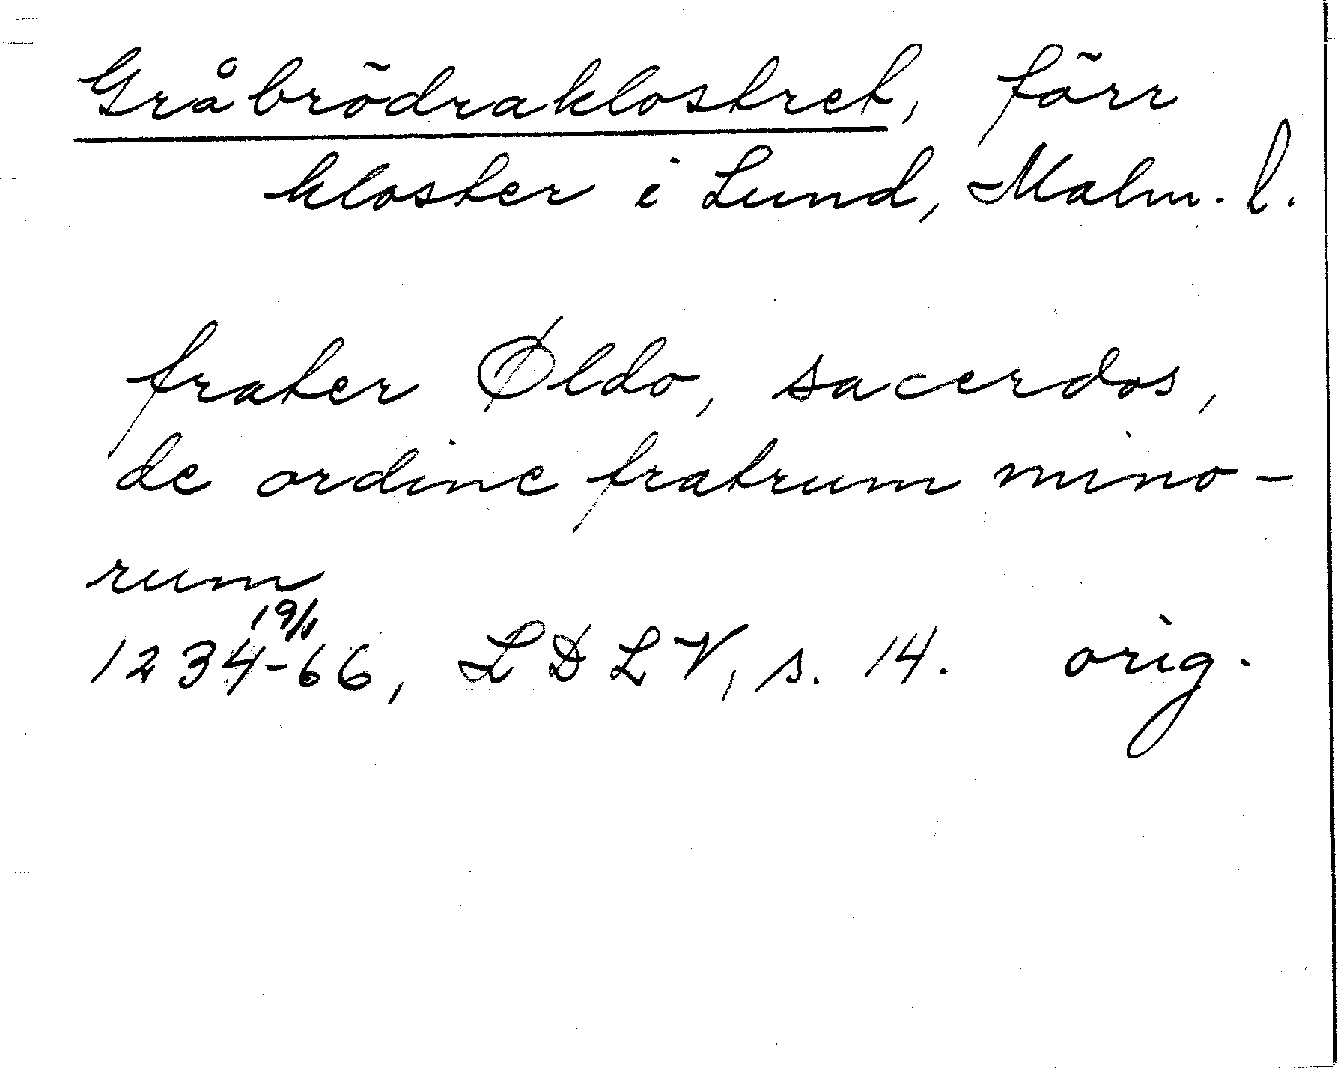 Gråbrödraklostret, förr
kloster i Lund, Malm. l.
frater Øldo, sacerdos,
de ordine fratrum mino-
rum
19/1
1234-66, LDLV, s. 14. orig.